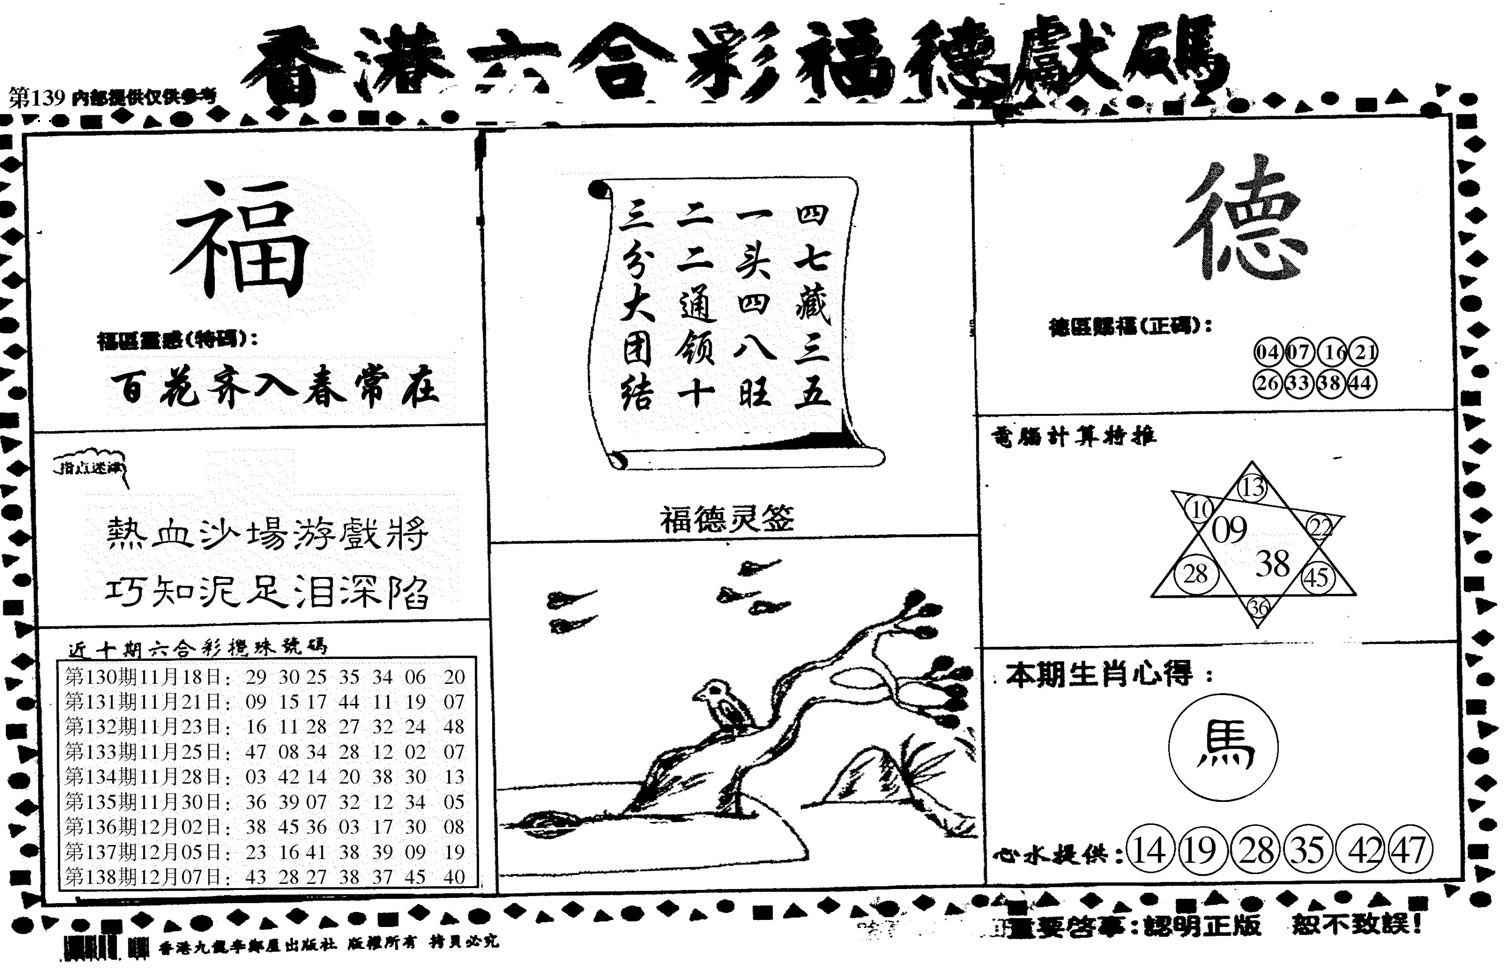 香港六合彩福德獻碼
第139 内部提供仅供参考
福
福區靈感(特碼):
百花齐入春常在
指点迷津
熱血沙場游戲將
巧知泥足泪深陷
近十期六合彩攪珠號碼
第130期11月18日: 29 30 25 35 34 06 20
第131期11月21日: 09 15 17 44 11 19 07
第132期11月23日: 16 11 28 27 32 24 48
第133期11月25日: 47 08 34 28 12 02 07
第134期11月28日: 03 42 14 20 38 30 13
第135期11月30日: 36 39 07 32 12 34 05
第136期12月02日: 38 45 36 03 17 30 08
第137期12月05日: 23 16 41 38 39 09 19
第138期12月07日: 43 28 27 38 37 45 40
四七藏三五
一头四八旺
二二通领十
三分大团结
福德灵签
德
德區賜福(正碼):
04 07 16 21
26 33 38 44
電腦計算特推
13
10
22
09
38
28
45
36
本期生肖心得:
馬
心水提供: 14 19 28 35 42 47
香港九龍李鄭屋出版社 版權所有 拷貝必究
重要啓事:認明正版 恕不致誤!